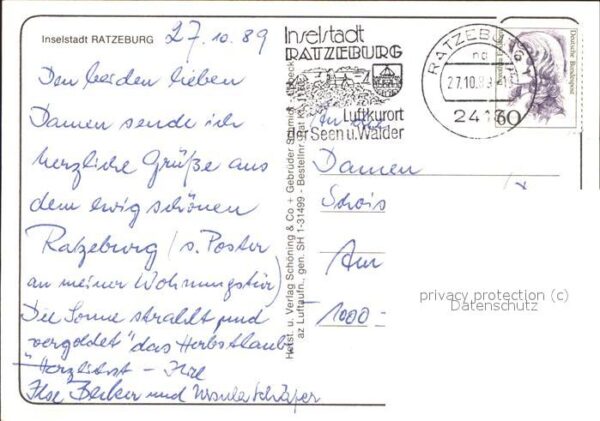 Inselstadt RATZEBURG
27.10.89
Den beiden lieben
Damen sende ich
herzliche Grüße aus
dem ewig schönen
Ratzeburg (s. Poster
an meiner Wohnungstür)
Die Sonne strahlt und
"vergoldet" das Herbstlaub
Herzlichst - Ihre
Ilse Becker und Ursula Schäper
Herst. u. Verlag Schöning & Co + Gebrüder Schmidt · Lübeck
az Luftaufn., gen. SH 1-31499 - Bestellnr.
Inselstadt
RATZEBURG
Luftkurort
der Seen u. Wälder
RATZEBURG 1
27.10.89
2418
Deutsche Bundespost
60
An die
Damen
Am
1000-
privacy protection (c)
Datenschutz